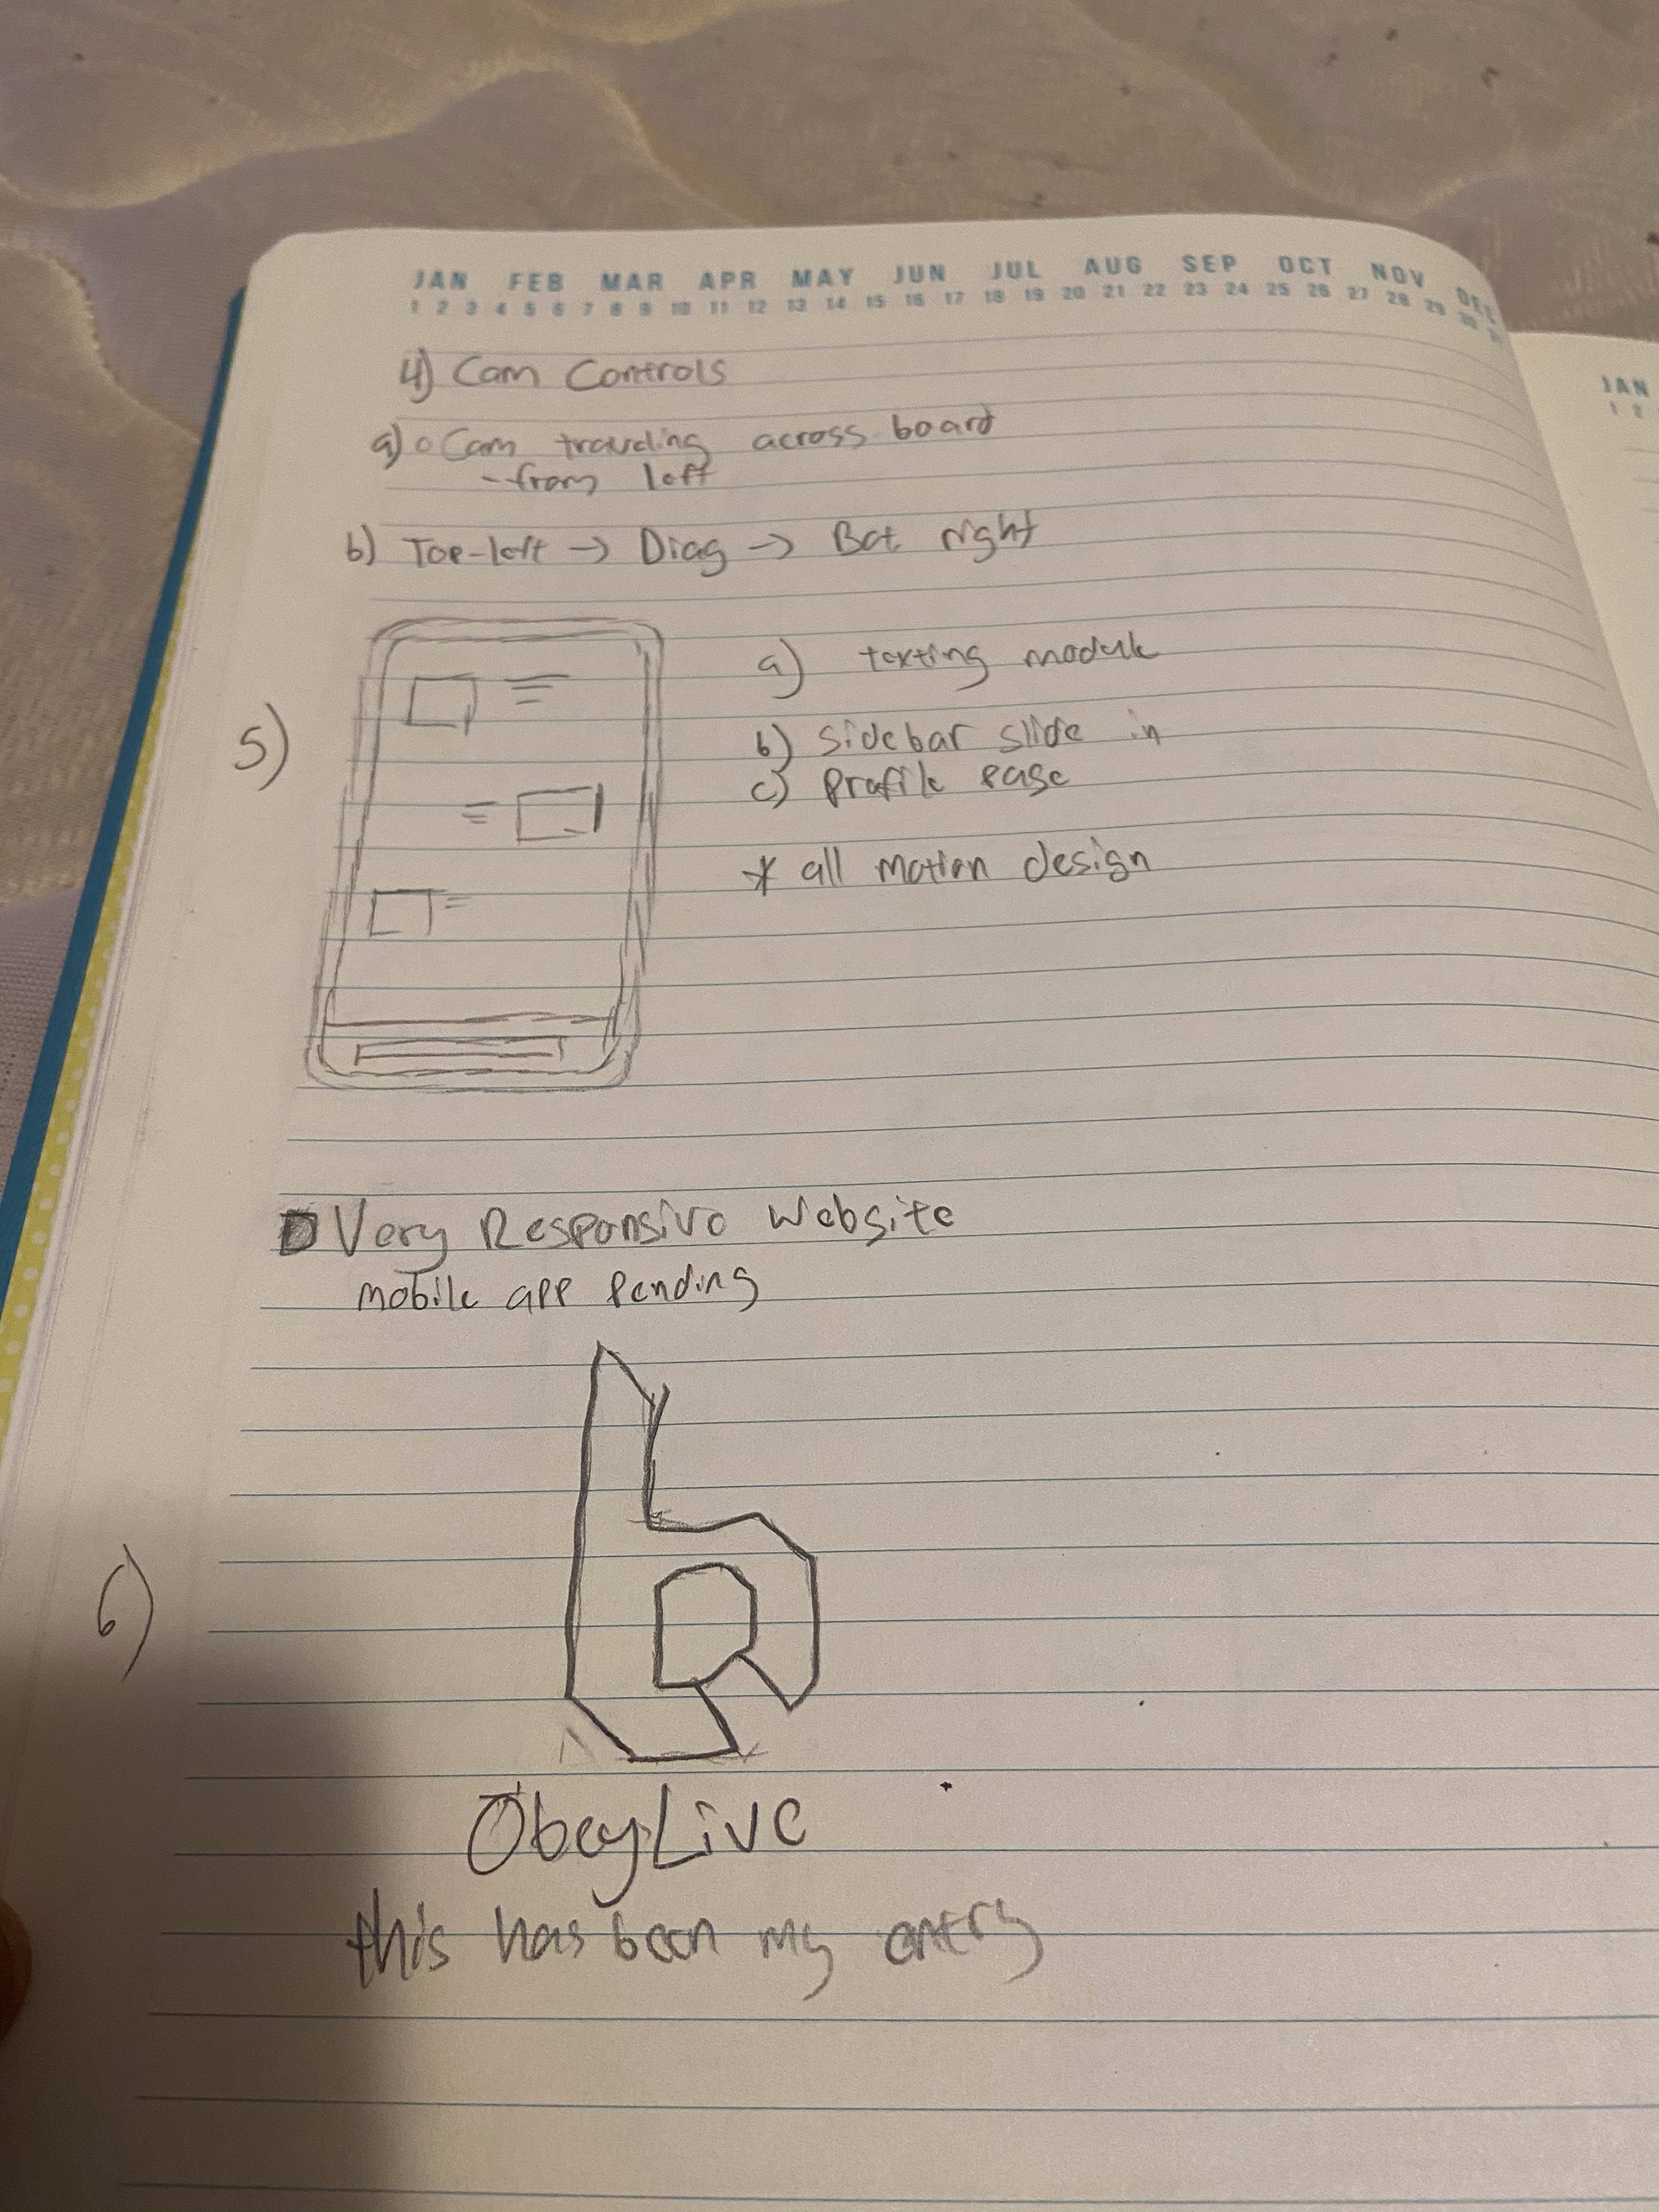 JAN FEB MAR APR MAY JUN JUL AUG SEP OCT NOV DEC
1 2 3 4 5 6 7 8 9 10 11 12 13 14 15 16 17 18 19 20 21 22 23 24 25 26 27 28 29 30 31
4) Cam Controls
a) o Cam traveling across board
- from left
b) Top-left → Diag → Bot right
5)
a) texting module
b) sidebar slide in
c) profile page
* all motion design
Very Responsive Website
mobile app pending
6)
ObeyLive
this has been my entry
JAN
1 2